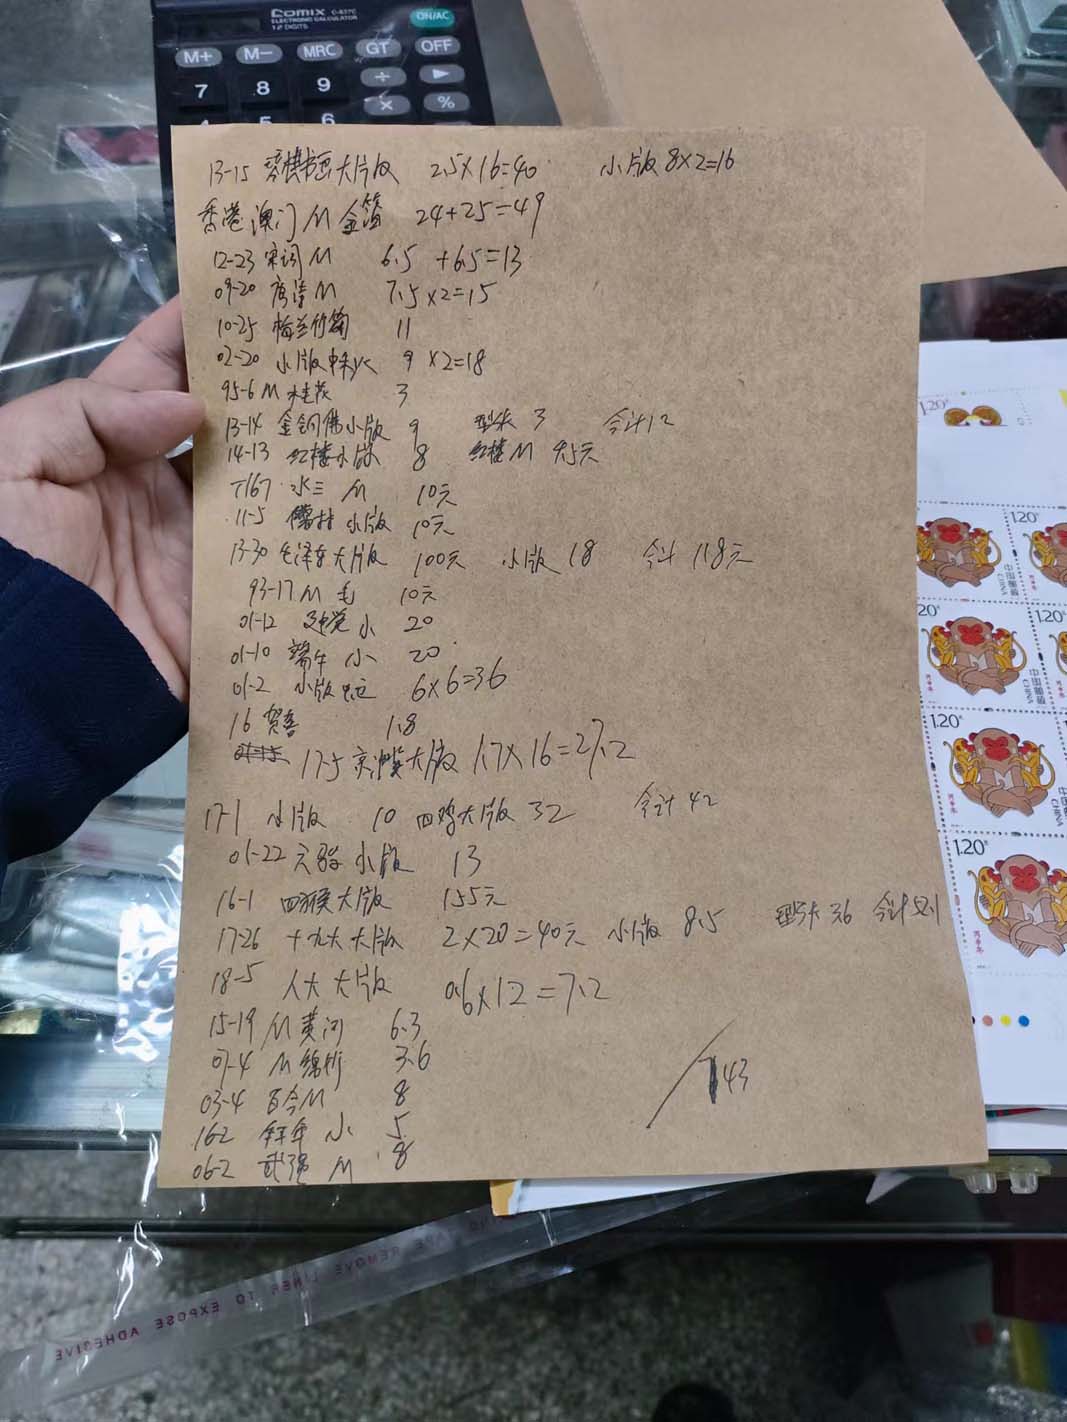 comix C-837C
ELECTRONIC CALCULATOR
12 DIGITS
ON/AC
M+ M− MRC GT OFF
7 8 9 ÷ ▶
5 6 × %
13-15 琴棋书画大版 2.5×16=40 小版 8×2=16
香港澳门M金箔 24+25=49
12-23 宋词M 6.5+6.5=13
09-20 唐诗M 7.5×2=15
10-25 梅兰竹菊 11
02-20 小版中秋 9×2=18
95-6 M 桂花 3
13-14 金铜佛小版 9 型张 3 合计12
14-13 红楼小版 8 红楼M 4.5元
T167 水三 M 10元
11-5 儒林小版 10元
13-30 毛泽东大版 100元 小版 18 合计 118元
93-17 M 毛 10元
01-12 小 20
01-10 端午 小 20
01-2 小版 6×6=36
16 贺喜 1.8
17-5 京津冀大版 1.7×16=27.2
17-1 小版 10 四鸡大版 32 合计 42
01-22 小版 13
16-1 四猴大版 155元
17-26 十九大大版 2×20=40元 小版 8.5 型张 3.6 合计
18-5 人大大版 0.6×12=7.2
15-19 M黄河 6.3
07-4 M绵竹 3.6
03-4 百合M 8
16-2 拜年 小 5
06-2 武强 M 8
743
1.20元
1.20元
中国邮政
CHINA
丙申年
1.20元
中国邮政
CHINA
丙申年
1.20元
中国邮政
CHINA
丙申年
1.20元
丙申年
REMOVE LINER TO EXPOSE ADHESIVE